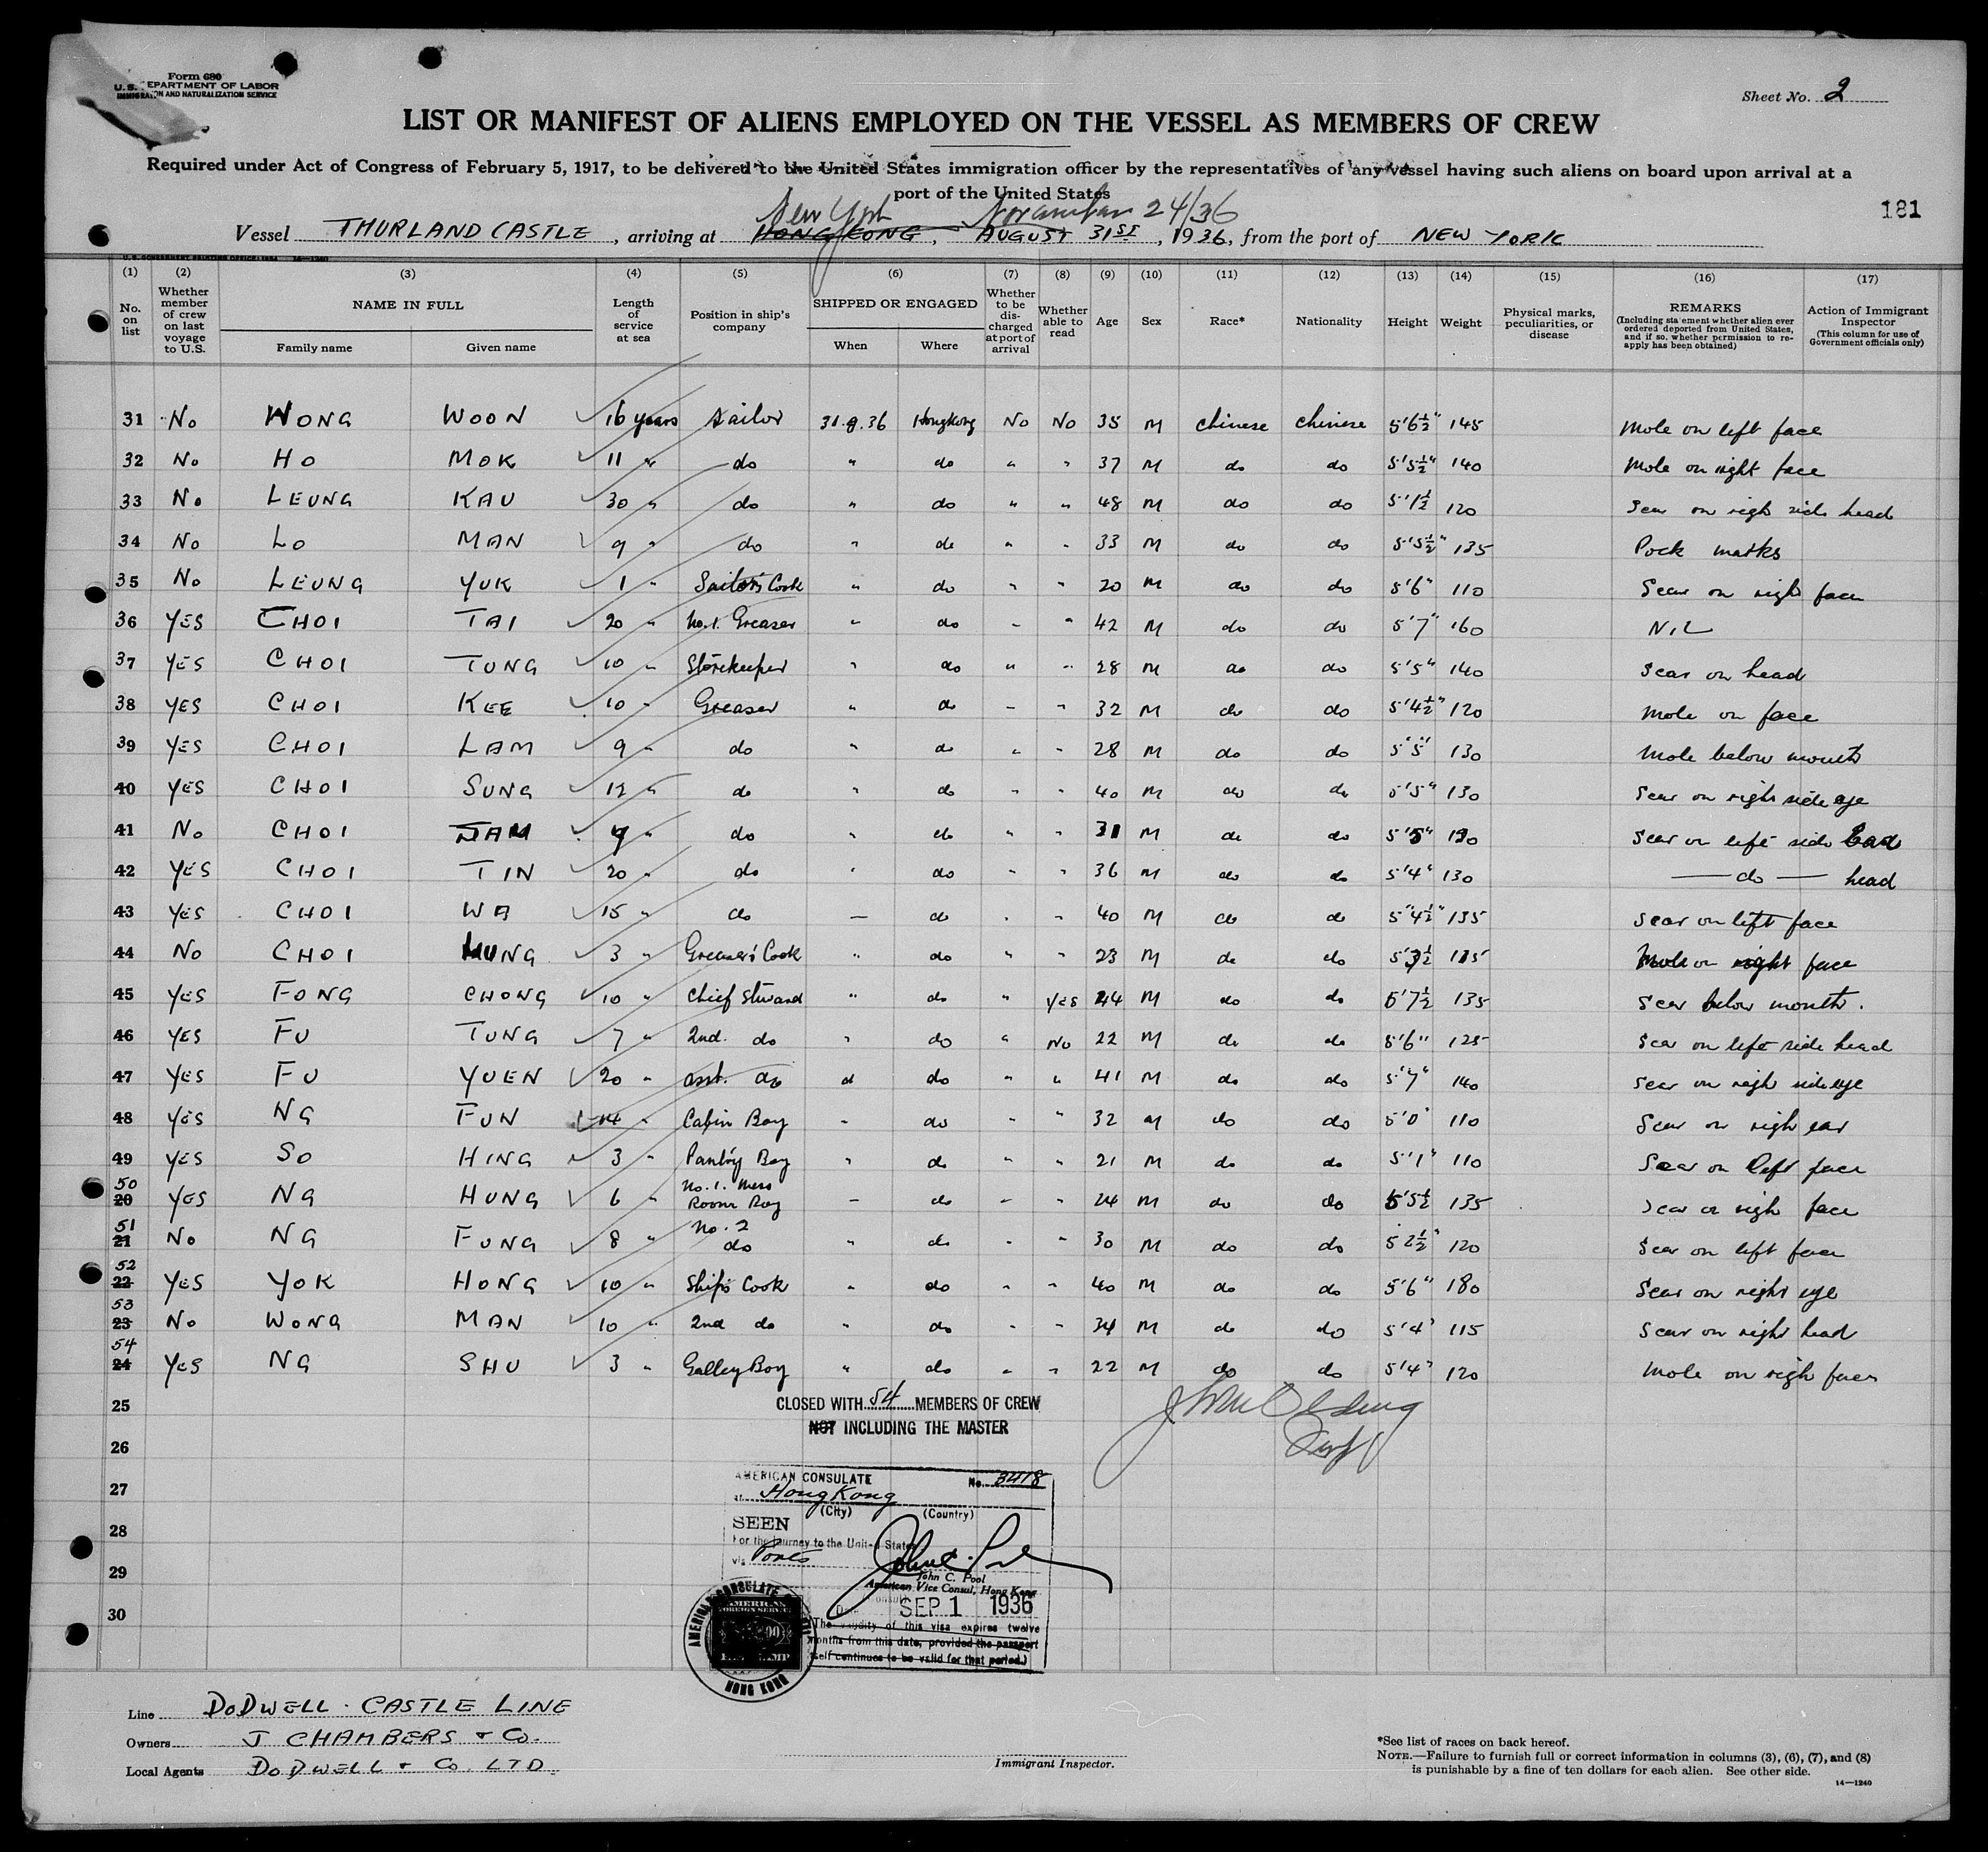 Form 680
U. S. DEPARTMENT OF LABOR
IMMIGRATION AND NATURALIZATION SERVICE
Sheet No. 2
LIST OR MANIFEST OF ALIENS EMPLOYED ON THE VESSEL AS MEMBERS OF CREW
Required under Act of Congress of February 5, 1917, to be delivered to the United States immigration officer by the representatives of any vessel having such aliens on board upon arrival at a
port of the United States
181
New York November 24/36
Vessel THURLAND CASTLE, arriving at HONG KONG, AUGUST 31ST, 1936, from the port of NEW YORK
(1) (2) (3) (4) (5) (6) (7) (8) (9) (10) (11) (12) (13) (14) (15) (16) (17)
No. on list
Whether member of crew on last voyage to U.S.
NAME IN FULL
Family name
Given name
Length of service at sea
Position in ship's company
SHIPPED OR ENGAGED
When
Where
Whether to be discharged at port of arrival
Whether able to read
Age
Sex
Race*
Nationality
Height
Weight
Physical marks, peculiarities, or disease
REMARKS
(Including statement whether alien ever ordered deported from United States, and if so, whether permission to reapply has been obtained)
Action of Immigrant Inspector
(This column for use of Government officials only)
31 No WONG WOON 16 years Sailor 31.8.36 Hongkong No No 35 M Chinese Chinese 5'6½" 145 Mole on left face
32 No HO MOK 11 " do " do " " 37 M do do 5'5½" 140 Mole on right face
33 No LEUNG KAU 30 " do " do " " 48 M do do 5'1½ 120 Scar on righ side head
34 No LO MAN 9 " do " do " " 33 M do do 5'5½" 135 Pock marks
35 No LEUNG YUK 1 " Sailor's Cook " do " " 20 M do do 5'6" 110 Scar on righ face
36 YES CHOI TAI 20 " No. 1. Greaser " do " " 42 M do do 5'7" 160 NIL
37 YES CHOI TUNG 10 " Storekeeper " do " " 28 M do do 5'5" 140 Scar on head
38 YES CHOI KEE 10 " Greaser " do " " 32 M do do 5'4½" 120 Mole on face
39 YES CHOI LAM 9 " do " do " " 28 M do do 5'5" 130 Mole below mouth
40 YES CHOI SUNG 12 " do " do " " 40 M do do 5'5" 130 Scar on righ side eye
41 No CHOI do " do " " 31 M do do 5'5" 130 Scar on left side
42 YES CHOI TIN 20 " do " do " " 36 M do do 5'4" 130 — do — head
43 YES CHOI WA 15 " do — do " " 40 M do do 5'4½" 135 Scar on left face
44 No CHOI HUNG 3 " Greaser's Cook " do " " 23 M do do Mole on right face
45 YES FONG CHONG 10 " Chief Steward " do " Yes 44 M do do 5'7½ 135 Scar below mouth.
46 YES FU TUNG 7 " 2nd. do " do " No 22 M do do 5'6" 125 Scar on left side head
47 YES FU YUEN 20 " asst. do " do " " 41 M do do 5'7" 140 Scar on righ side eye
48 YES NG FUN 14 " Cabin Boy " do " 32 M do do 5'0" 110 Scar on righ ear
49 YES SO HING 3 " Pantry Boy " do " " 21 M do do 5'1" 110 Scar on left face
50 20 YES NG HUNG 6 " No. 1. Mess Room Boy — do " " 24 M do do 5'5½ 135 Scar on righ face
51 21 No NG FUNG 8 " No. 2 do " do " " 30 M do do 5 2½" 120 Scar on left face
52 22 YES YOK HONG 10 " Ship's Cook " do " " 40 M do do 5'6" 180 Scar on right eye
53 23 No WONG MAN 10 " 2nd do " do " " 34 M do do 5'4" 115 Scar on right head
54 24 YES NG SHU 3 " Galley Boy " do " " 22 M do do 5'4" 120 Mole on righ face
25
CLOSED WITH 54 MEMBERS OF CREW
NOT INCLUDING THE MASTER
26
27
28
29
30
AMERICAN CONSULATE No. 3418
at Hong Kong
(City) (Country)
SEEN
For the journey to the United States
via Ports
John C. Pool
American Vice Consul, Hong Kong
Date SEP 1 1936
The validity of this visa expires twelve
months from this date, provided the passport
itself continues to be valid for that period.)
AMERICAN CONSULATE
HONG KONG
AMERICAN
FOREIGN SERVICE
Line DODWELL. CASTLE LINE
Owners J CHAMBERS & Co.
Local Agents DODWELL & Co. LTD.
Immigrant Inspector.
*See list of races on back hereof.
NOTE.—Failure to furnish full or correct information in columns (3), (6), (7), and (8)
is punishable by a fine of ten dollars for each alien. See other side.
14—1240